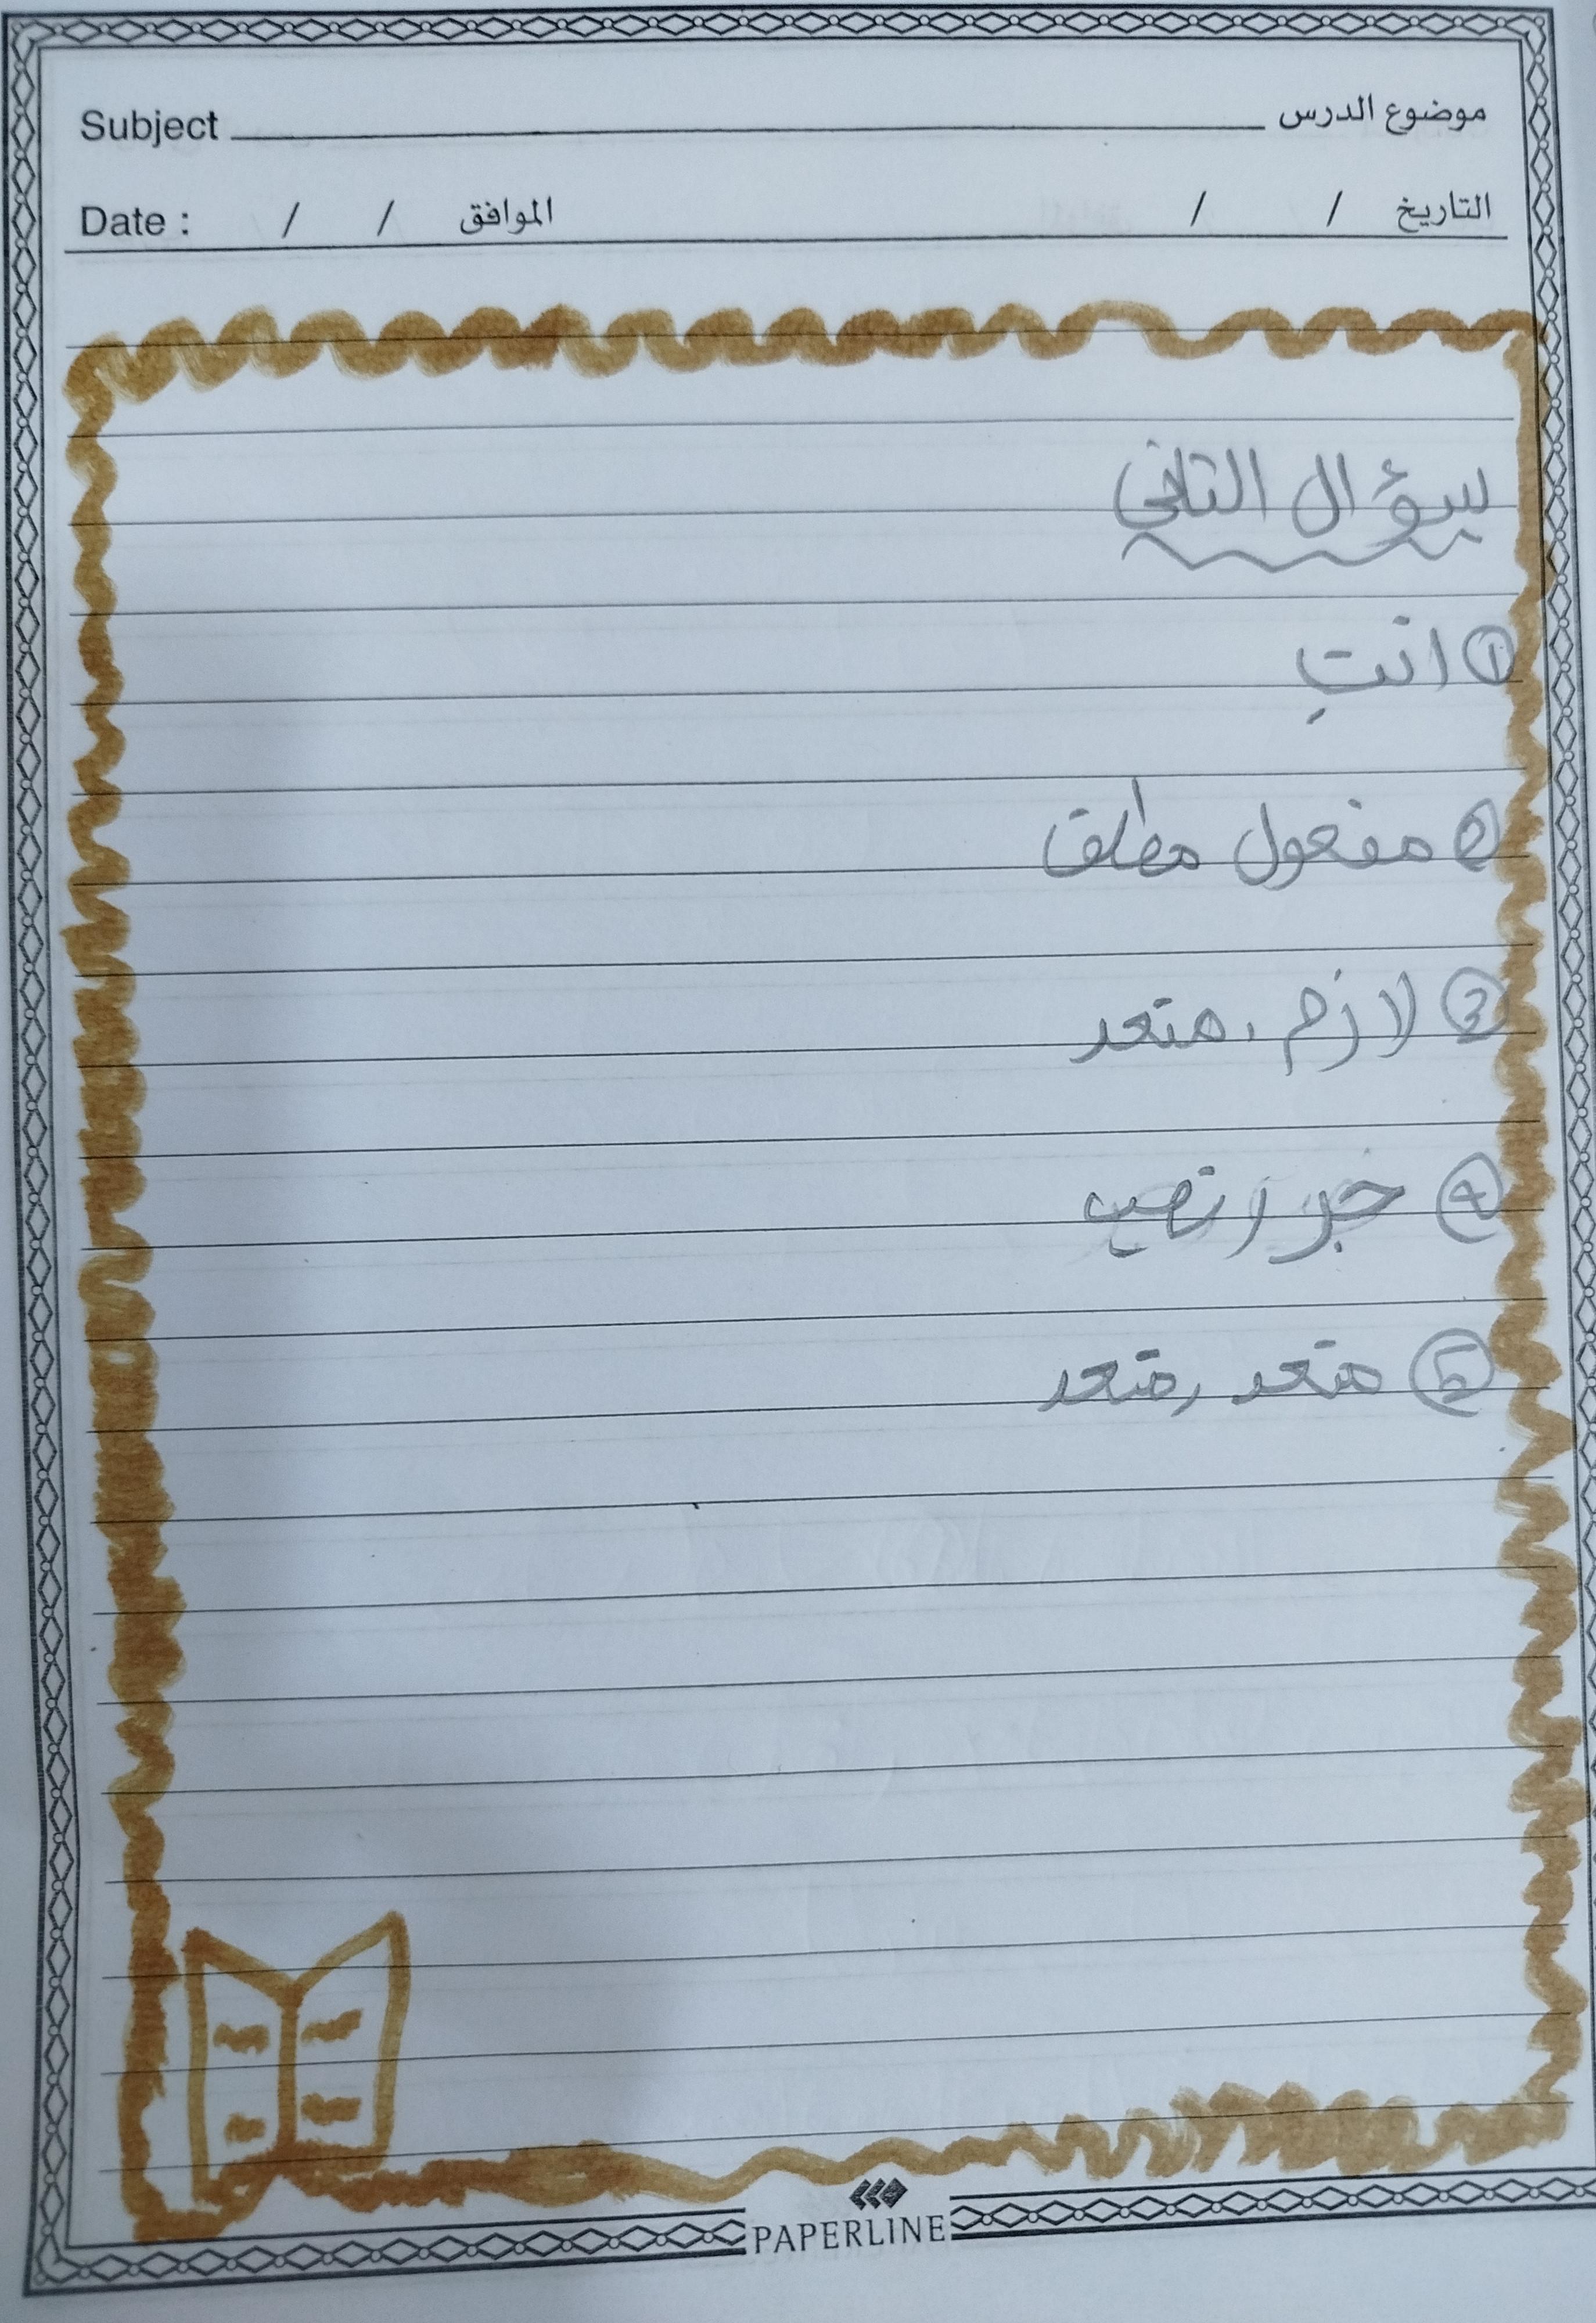 موضوع الدرس Subject
التاريخ / / الموافق / / Date :
سؤال الثاني
① انتِ
② مفعول مطلق
③ لازم , متعد
④ خبر , نصب
⑤ متعد , متعد
PAPERLINE